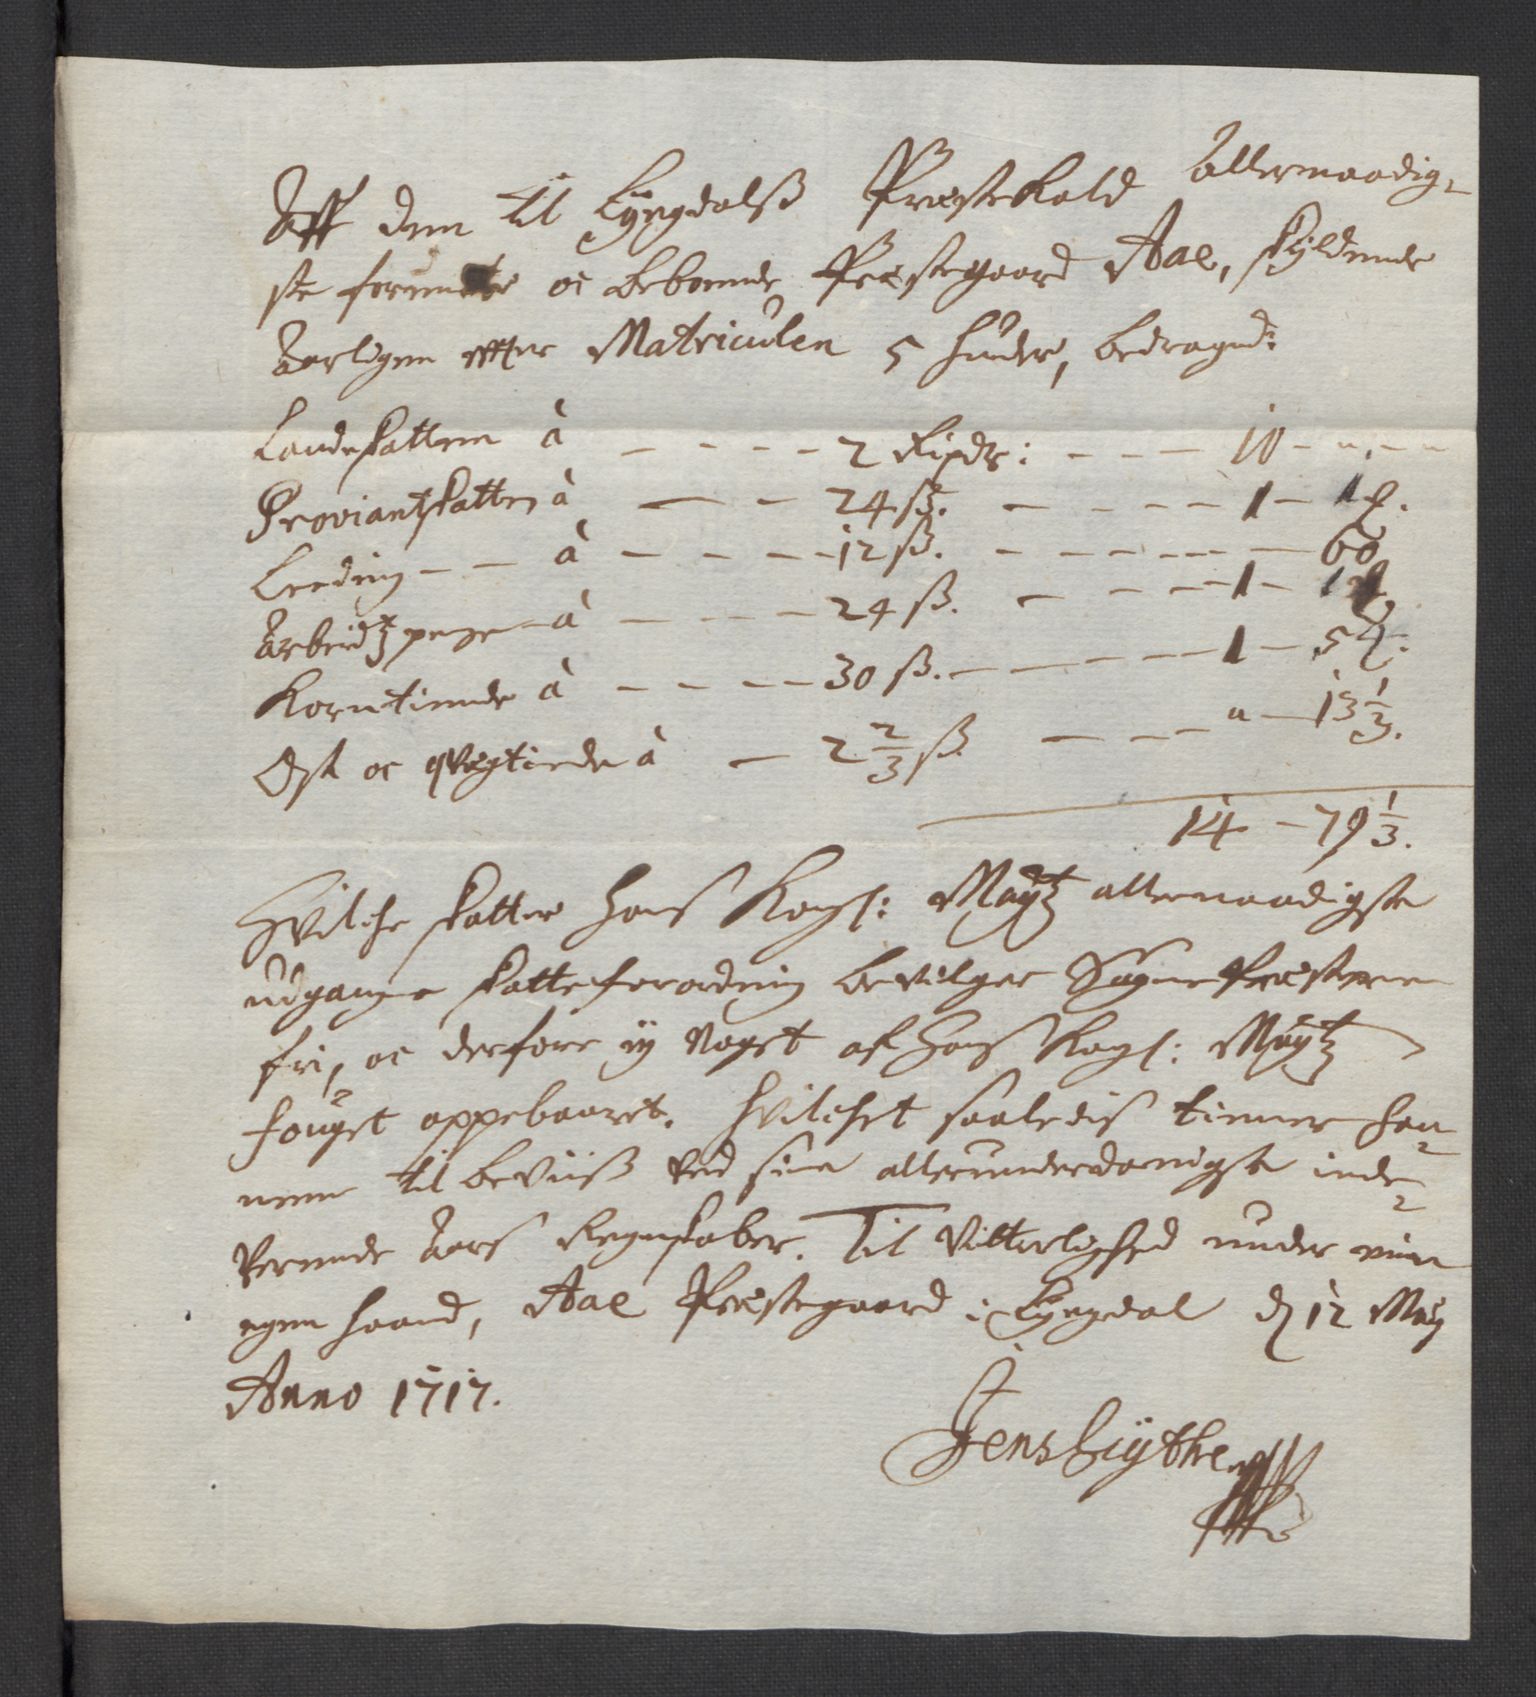 Aff dem til Lyngdalß Præstekald allernaadig-
ste forundte oc beboende Præstegaard Aae, skyldende
Aarligen effter Matriculen 5 huder, bedragend:
Landskatten à - - - - 2 Rixdr: - - - 10 - " - "
Proviantskatten à - - 24 sk. - - - - 1 - 1 ℔.
Leeding - - à - - - - 12 sk. - - - - - 60
Arbeidtz penge - à - - - - 24 sk. - - - - 1 - 1 ℔.
Korntiende à - - - - 30 sk. - - - - 1 - 5 ℔.
Ost oc qvægtiende à - 2 2/3 sk - - - " - 13 1/3.
14 - 79 1/3.
Hvilche skatter hans Kongl: Maytz allernaadigste
udgangne skatteforordning bevilger Sogne Præsterne
fri, oc derfore ey noget af hans Kongl: Maytz
fouget oppebaaret. hvilchet saaledis tiener han-
nem til beviiß ved sine allerunderdanigste inde-
verende Aars Regnskaber. Til Vitterlighed under min
egen haand, Aae Præstegaard i Lyngdal d 12 May
Anno 1717.
Jens Giythe